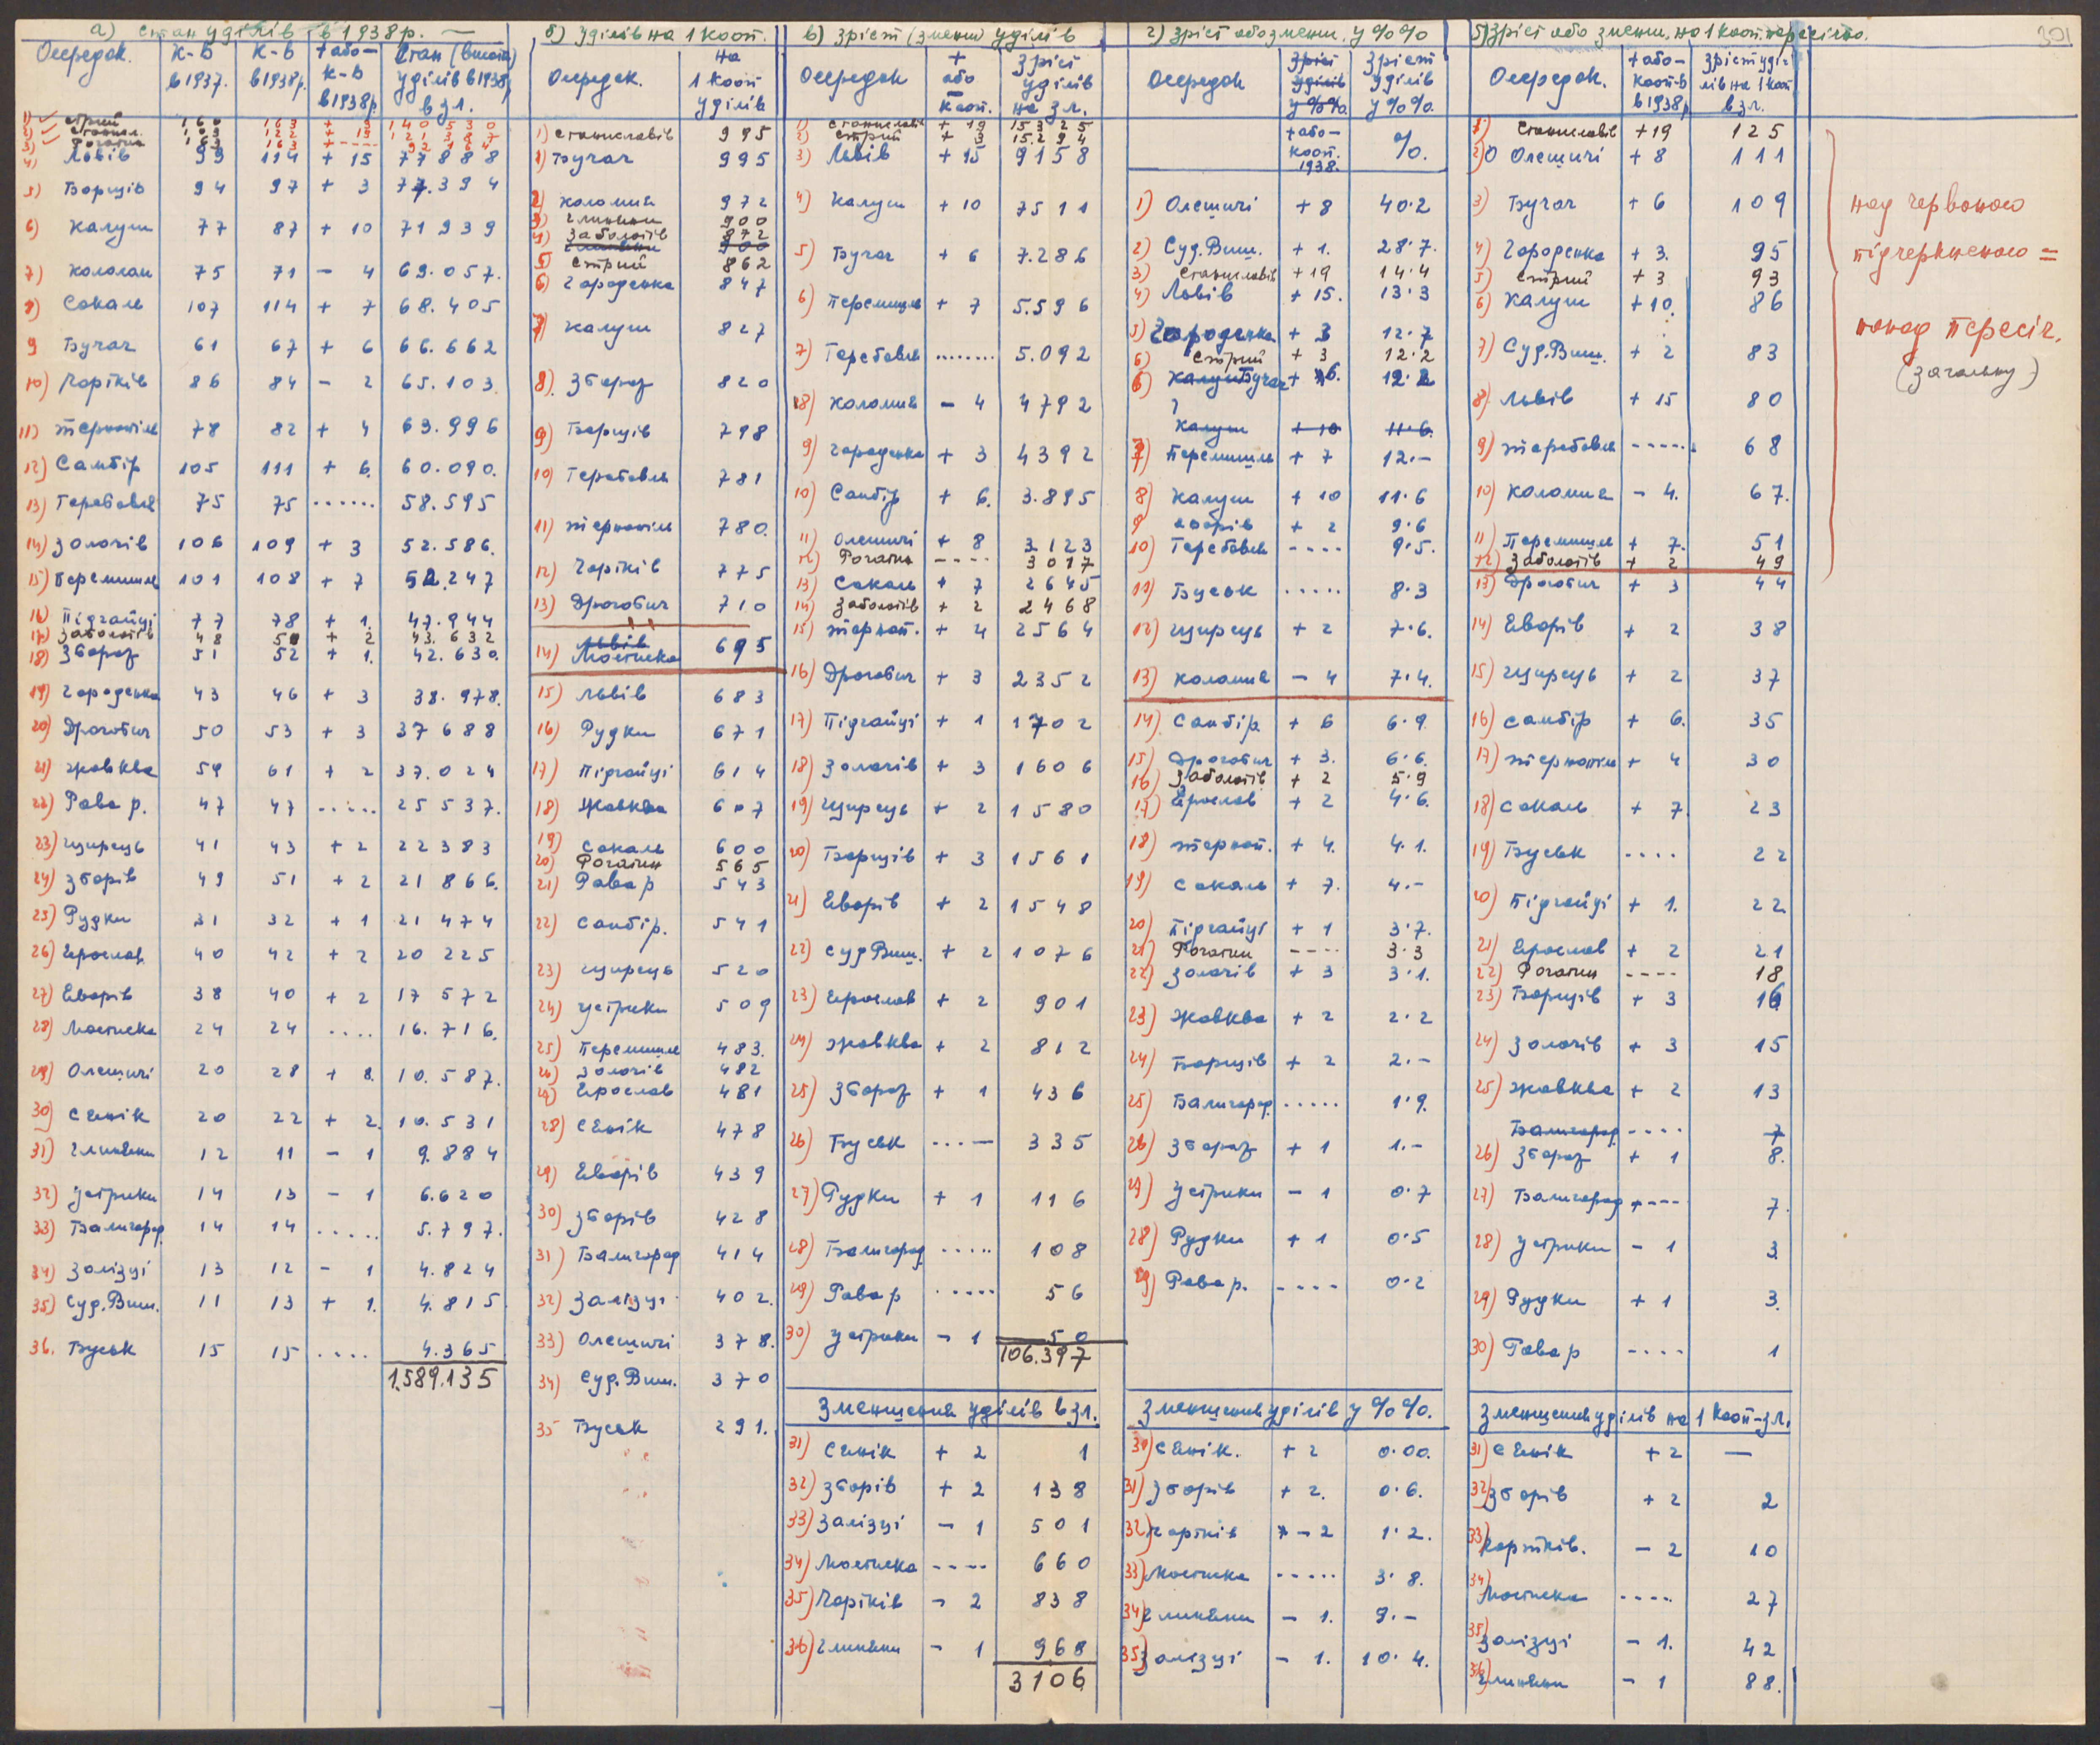 301
а) стан уділів в 1938 р.
Осередок. К-В в 1937. К-В в 1938 р. + або – К-В в 1938 р. Стан (висота) уділів в 1938 р. в зл.
1) Стрий 160 163 + 3 140530
2) Станисл. 103 122 + 19
3) Рогатин 163 163 -----
4) Львів 99 114 + 15 77888
5) Борщів 94 97 + 3 77.394
6) Калуш 77 87 + 10 71939
7) Коломия 75 71 – 4 69.057.
8) Сокаль 107 114 + 7 68.405
9 Бучач 61 67 + 6 66.662
10) Чортків 86 84 – 2 65.103.
11) Тернопіль 78 82 + 4 63.996
12) Самбір 105 111 + 6. 60.090.
13) Теребовля 75 75 ...... 58.595
14) Золочів 106 109 + 3 52.586.
15) Перемишль 101 108 + 7 52.247
16) Підгайці 77 78 + 1. 47.944
17) Заболотів 48 50 + 2 43.632
18) Збараж 51 52 + 1. 42.630.
19) Городенка 43 46 + 3 38.978.
20) Дрогобич 50 53 + 3 37688
21) Жовква 59 61 + 2 37.024
22) Рава р. 47 47 ..... 25537.
23) Щирець 41 43 + 2 22383
24) Зборів 49 51 + 2 21866.
25) Рудки 31 32 + 1 21474
26) Ярослав 40 42 + 2 20225
27) Яворів 38 40 + 2 17572
28) Мостиска 24 24 .... 16.716.
29) Олешичі 20 28 + 8. 10.587.
30) Сянік 20 22 + 2. 10.531
31) Глиняни 12 11 – 1 9.884
32) Устрики 14 13 – 1 6.620
33) Балигород 14 14 ..... 5.797.
34) Залізці 13 12 – 1 4.824
35) Суд. Виш. 11 13 + 1. 4.815
36. Буськ 15 15 .... 4.365
1.589.135
б) Уділів на 1 кооп.
Осередок. на 1 кооп уділів
1) Станиславів 995
1) Бучач 995
2) Коломия 972
3) Глиняни 900
4) Заболотів 872
Глиняни 900
5 Стрий 862
6) Городенка 847
7) Калуш 827
8). Збараж 820
9) Борщів 798
10) Теребовля 781
11) Тернопіль 780.
12) Чортків 775
13) Дрогобич 710
14) Львів Мостиска 695
15) Львів 683
16) Рудки 671
17) Підгайці 614
18) Жовква 607
19) Сокаль 600
20) Рогатин 565
21) Рава р 543
22) Самбір. 541
23) Щирець 520
24) Устрики 509
25) Перемишль 483.
26) Золочів 482
27) Ярослав 481
28) Сянік 478
29) Яворів 439
30) Зборів 428
31) Балигород 414
32) Залізці 402.
33) Олешичі 378.
34) Суд. Виш. 370
35 Буськ 291.
в) зріст (зменш) уділів
Осередок + або – кооп. зріст уділів на зл.
1) Станиславів + 19 15325
2) Стрий + 3 15.294
3) Львів + 15 9158
4) Калуш + 10 7511
5) Бучач + 6 7.286
6) Перемишль + 7 5.596
7) Теребовля ........ 5.092
8) Коломия – 4 4792
9) Городенка + 3 4392
10) Самбір + 6. 3.895
11) Олешичі + 8 3123
12) Рогатин ---- 3017
13) Сокаль + 7 2645
14) Заболотів + 2 2468
15) Терноп. + 4 2564
16) Дрогобич + 3 2352
17) Підгайці + 1 1702
18) Золочів + 3 1606
19) Щирець + 2 1580
20) Борщів + 3 1561
21) Яворів + 2 1548
22) Суд Виш. + 2 1076
23) Ярослав + 2 901
24) Жовква + 2 812
25) Збараж + 1 436
26) Буськ ...– 335
27) Рудки + 1 116
28) Балигород ..... 108
29) Рава р ..... 56
30) Устрики – 1 50
106.397
Зменшення уділів в зл.
31) Сянік + 2 1
32) Зборів + 2 138
33) Залізці – 1 501
34) Мостиска ---- 660
35) Чортків – 2 838
36) Глиняни – 1 968
3106
г) зріст або зменш. у %%
Осередок зріст уділів у %% зріст уділів у %%.
+ або – кооп. 1938. %.
1) Олешичі + 8 40·2
2) Суд. Виш. + 1. 28·7.
3) Станиславів + 19 14·4
4) Львів + 15. 13·3
5) Городенка + 3 12·7
6) Стрий + 3 12·2
6) Калуш Бучач + 6. 12·2
Калуш + 10 11·6.
7) Перемишль + 7 12.–
8) Калуш + 10 11·6
9) Яворів + 2 9·6
10) Теребовля ---- 9·5.
11) Буськ ..... 8·3
12) Щирець + 2 7·6.
13) Коломия – 4 7·4.
14) Самбір. + 6 6·9.
15) Дрогобич + 3. 6·6.
16) Заболотів + 2 5·9
17) Ярослав + 2 4·6.
18) Терноп. + 4. 4·1.
19) Сокаль + 7. 4.–
20) Підгайці + 1 3·7.
21) Рогатин ---- 3·3
22) Золочів + 3 3·1.
23) Жовква + 2 2·2
24) Борщів + 2 2.–
25) Балигород ..... 1·9.
26) Збараж + 1 1.–
27) Устрики – 1 0·7
28) Рудки + 1 0·5
29) Рава р. ---- 0·2
Зменшення уділів у %%.
30) Сянік. + 2 0·00.
31) Зборів + 2. 0·6.
32) Чортків – 2 1·2.
33) Мостиска ..... 3·8.
34) Глиняни – 1. 9·–
35) Залізці – 1. 10·4.
5) Зріст або зменш. на 1 кооп. пересічно.
Осередок. + або – кооп-в в 1938 р зріст уділів на 1 кооп в зл.
1) Станиславів + 19 125
2) Олешичі + 8 111
3) Бучач + 6 109
4) Городенка + 3. 95
5) Стрий + 3 93
6) Калуш + 10. 86
7) Суд. Виш. + 2 83
8) Львів + 15 80
9) Теребовля ----- 68
10) Коломия – 4. 67.
11) Перемишль + 7. 51
12) Заболотів + 2 49
13) Дрогобич + 3 44
14) Яворів + 2 38
15) Щирець + 2 37
16) Самбір + 6. 35
17) Тернопіль + 4 30
18) Сокаль + 7 23
19) Буськ .... 22
20) Підгайці + 1. 22
21) Ярослав + 2 21
22) Рогатин ---- 18
23) Борщів + 3 16
24) Золочів + 3 15
25) Жовква + 2 13
Балигород .... 7
26) Збараж + 1 8.
27) Балигород ---- 7
28) Устрики – 1 3
29) Рудки + 1 3.
30) Рава р ---- 1
Зменшення уділів на 1 кооп-зл.
31) Сянік + 2 —
32) Зборів + 2 2
33) Чортків. – 2 10
34) Мостиска .... 27
35) Залізці – 1. 42
36) Глиняни – 1 88.
над червоною
підчеркненою =
понад пересіч.
(загальну)